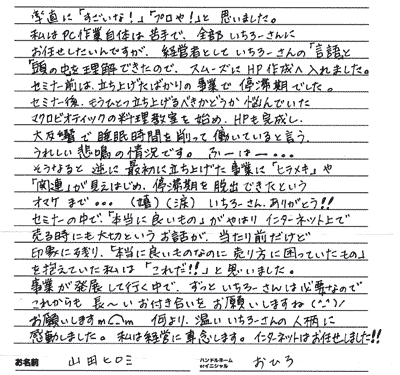 率直に「すごいな！」「プロや！」と思いました。
私はPC作業自体は苦手で、全部いちろーさんに
お任せしたいんですが、経営者としていちろーさんの「言語と
頭の中を理解できたので、スムーズにHP作成へ入れました。
セミナー前は、立ち上げたばかりの事業で停滞期でした。
セミナー後、もうひとつ立ち上げるべきかどうか悩んでいた
マクロビオティックの料理教室を始め、HPも完成し、
大反響で睡眠時間を削って働いていると言う
うれしい悲鳴の情況です。ふーはー・・・
そうなると逆に最初に立ち上げた事業に「ヒラメキ」や
「関連」が見えはじめ、停滞期を脱出できたという
オマケまで・・・（嬉）（涙）いちろーさん、ありがとう!!
セミナーの中で、「本当に良いもの」がやはりインターネット上で
売る時にも大切というお話が、当たり前だけど
印象に残り、「本当に良いものなのに売り方に困っていたもの」
を抱えていた私は「これだ!!」と思いました。
事業が発展して行く中で、ずっといちろーさんは必要なので
これからも長～いお付き合いをお願いしますね(^^)/
お願いしますm⌒m 何より、温いいちろーさんの人柄に
感動しました。私は経営に専念します。インターネットはお任せしました!!
お名前 山田ヒロミ ハンドルネーム orイニシャル おひろ